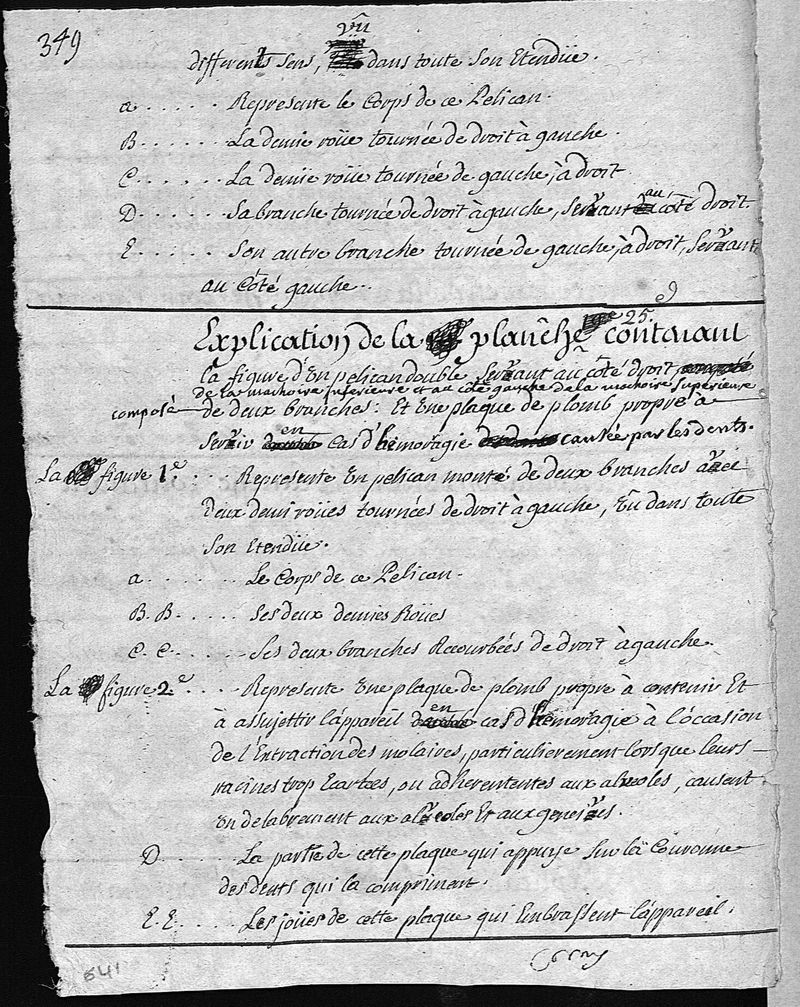 349
vûu
differents sens, dans toute son Etendüe.
a . . . . . . Represente le Corps de ce Pelican.
B. . . . . . La demie roüe tournée de droit à gauche.
C. . . . . . La demie roüe tournée de gauche, à droit.
D. . . . . . Sa branche tournée de droit à gauche, servant au côté droit.
E. . . . . . Son autre branche tournée de gauche, à droit, servant
au Côté gauche.
Explication de la planche 25.e contenant
la figure d'Un pelican double, servant au côté droit,
de la machoire inferieure et au côté gauche de la machoire superieure
composé de deux branches: Et Une plaque de plomb propre à
servir en cas d'hemoragie causée par les dents.
La figure 1.e . . . Represente Un pelican monté de deux branches avec
deux demi roües tournées de droit à gauche, vû dans toute
son Etendüe.
a. . . . . . Le Corps de ce Pelican.
B. B. . . . . Ses deux demies Roües
C. C. . . . . Ses deux branches Recourbées de droit à gauche.
La figure 2.e . . . . Represente Une plaque de plomb propre à contenir Et
à assujettir l'appareil en cas d'hemoragie à l'occasion
de l'Extraction des molaires, particulierement lorsque leurs
racines trop Ecartées, ou adherentes aux alveoles, causent
un delabrement aux alveoles Et aux gencives.
D . . . . . La partie de cette plaque qui appuye sur la Couronne
des dents qui la compriment.
E. E. . . . . Les joües de cette plaque qui Embrassent l'appareil.
641